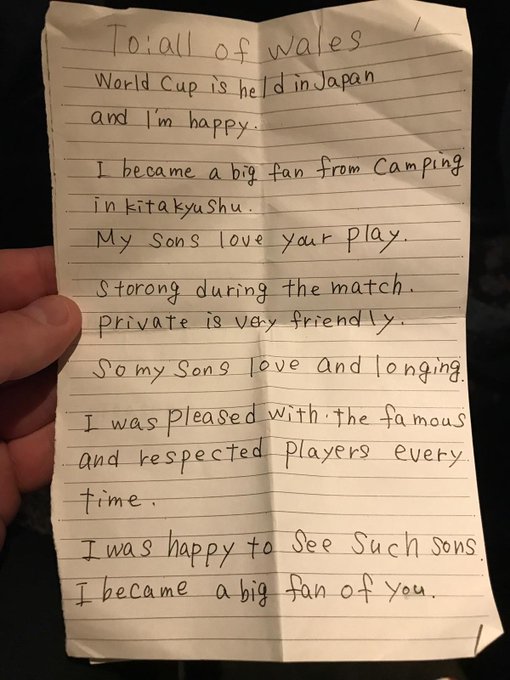 To: all of wales
World Cup is held in Japan
and I'm happy.
I became a big fan from Camping
in kitakyushu.
My sons love your play.
Storong during the match.
private is very friendly.
So my sons love and longing.
I was pleased with the famous
and respected players every
time.
I was happy to see such sons.
I became a big fan of you.